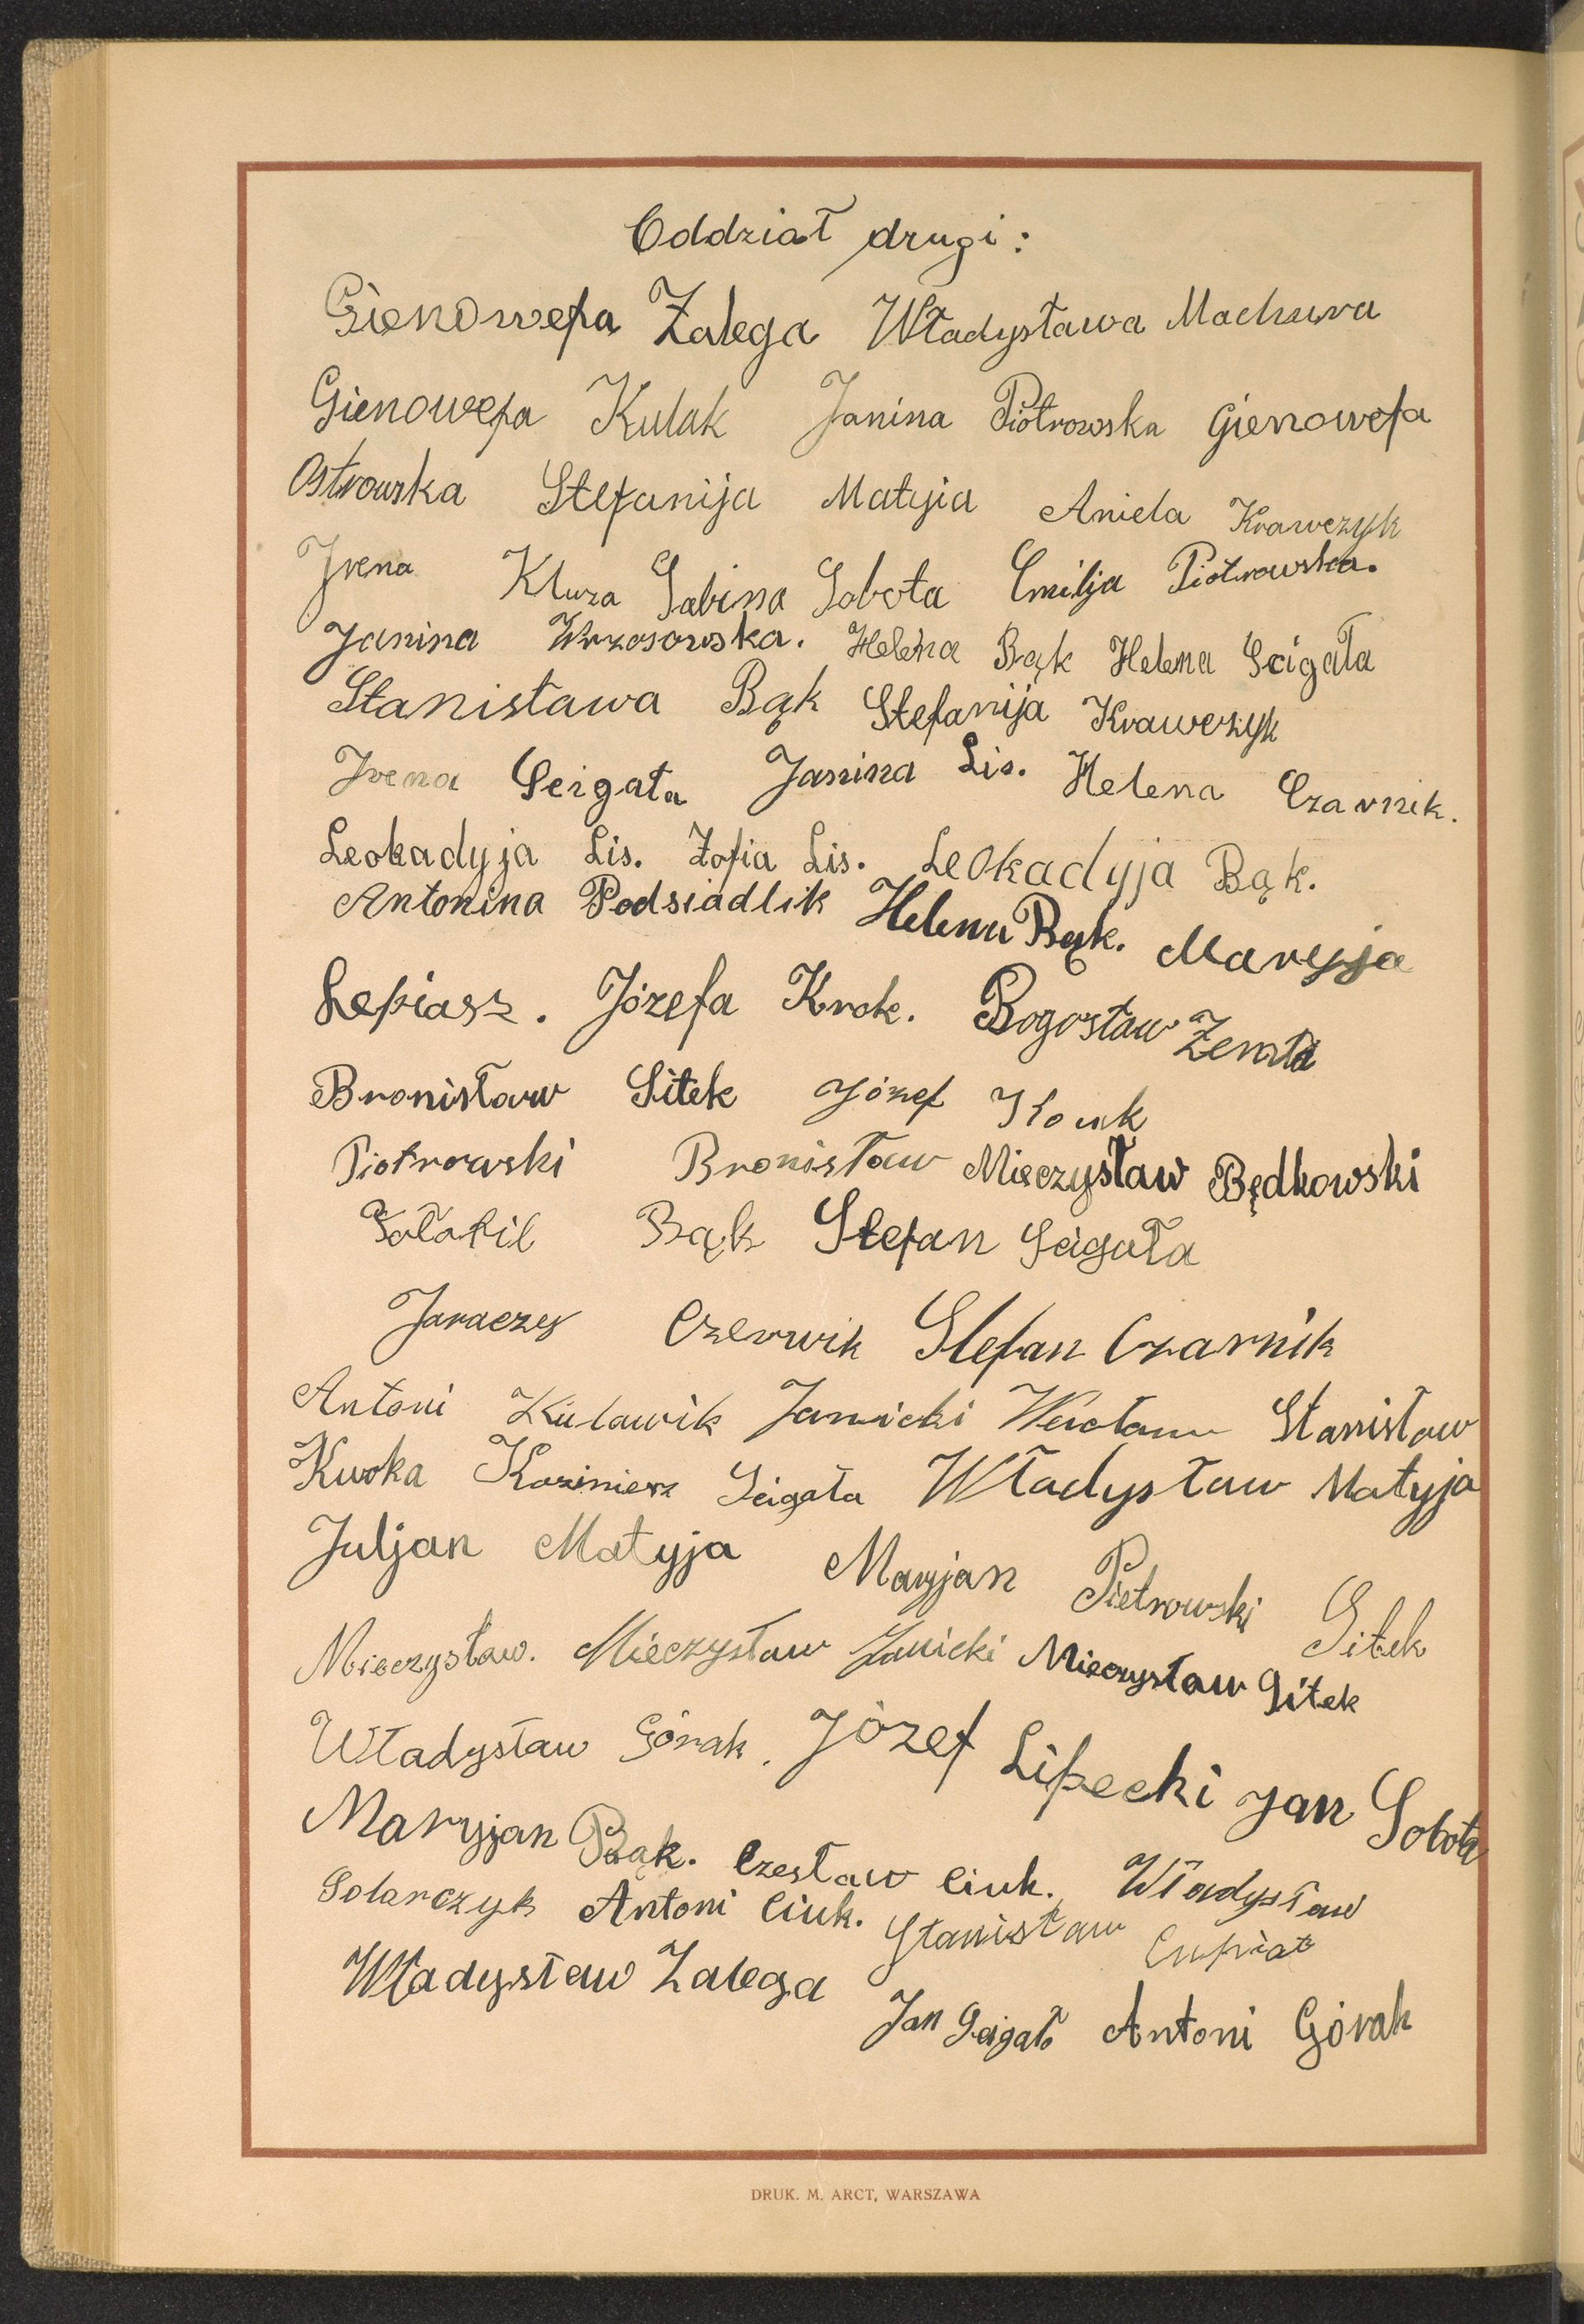 Oddział drugi:
Gienowefa Zalega Władysława Machura
Gienowefa Kulak Janina Piotrowska Gienowefa
Ostrowska Stefanija Matyia Aniela Krawczyk
Irena Kluza Sabina Sobota Emilja Piotrowska.
Janina Wrzosowska. Helena Bąk Helena Scigała
Stanisława Bąk Stefanija Krawczyk
Irena Scigała Janina Lis. Helena Czarnik.
Leokadyja Lis. Zofia Lis. Leokadyja Bąk.
Antonina Podsiadlik Helena Bąk. Maryja
Lepiasz. Józefa Krok. Bogosław
Bronisław Sitek Józef
Piotrowski Bronisław Mieczysław Będkowski
Bąk Stefan Scigała
Czerwik Stefan Czarnik
Antoni Kulawik Janicki Wacław Stanisław
Kwoka Kazimierz Scigała Władysław Matyja
Juljan Matyja Maryjan Pietrowski Sitek
Mieczysław. Mieczysław Janicki Mieczysław Sitek
Władysław Górak. Józef Lipecki Jan Sobota
Maryjan Bąk. Czesław Ciuk. Władysław
Solarczyk Antoni Ciuk. Stanisław Cupiał
Władysław Zalega Jan Scigała Antoni Górak
DRUK. M. ARCT, WARSZAWA